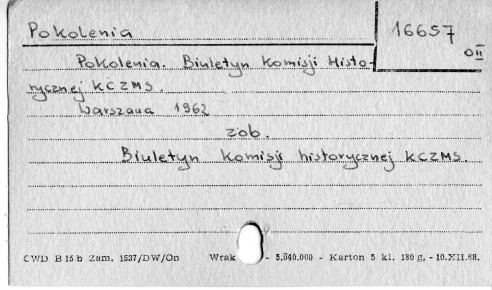 Pokolenia
16657
OII
Pokolenia. Biuletyn Komisji Histo-
rycznej KCZMS.
Warszawa 1962
zob.
Biuletyn Komisji historycznej KCZMS.
CWD B 15 b Zam. 1537/DW/On Wrak - 5.040.000 - Karton 5 kl. 180 g, - 10.XII.68.